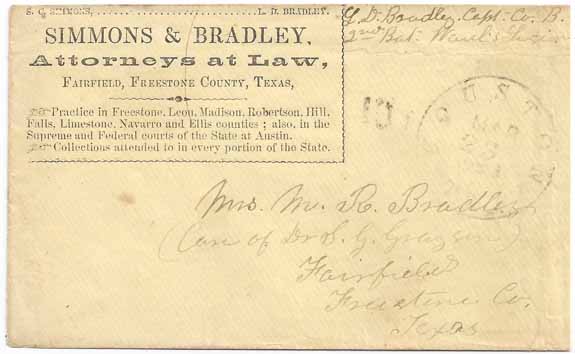 S. C. SIMMONS, L. D. BRADLEY.
SIMMONS & BRADLEY,
Attorneys at Law,
FAIRFIELD, FREESTONE COUNTY, TEXAS,
Practice in Freestone, Leon, Madison, Robertson, Hill,
Falls, Limestone, Navarro and Ellis counties; also, in the
Supreme and Federal courts of the State at Austin.
Collections attended to in every portion of the State.
L. D. Bradley Capt. Co. B.
2nd Bat. Waul's Legion
Mrs. M. R. Bradley
(Care of Dr. S. G. Grayson)
Fairfield
Freestone Co.
Texas